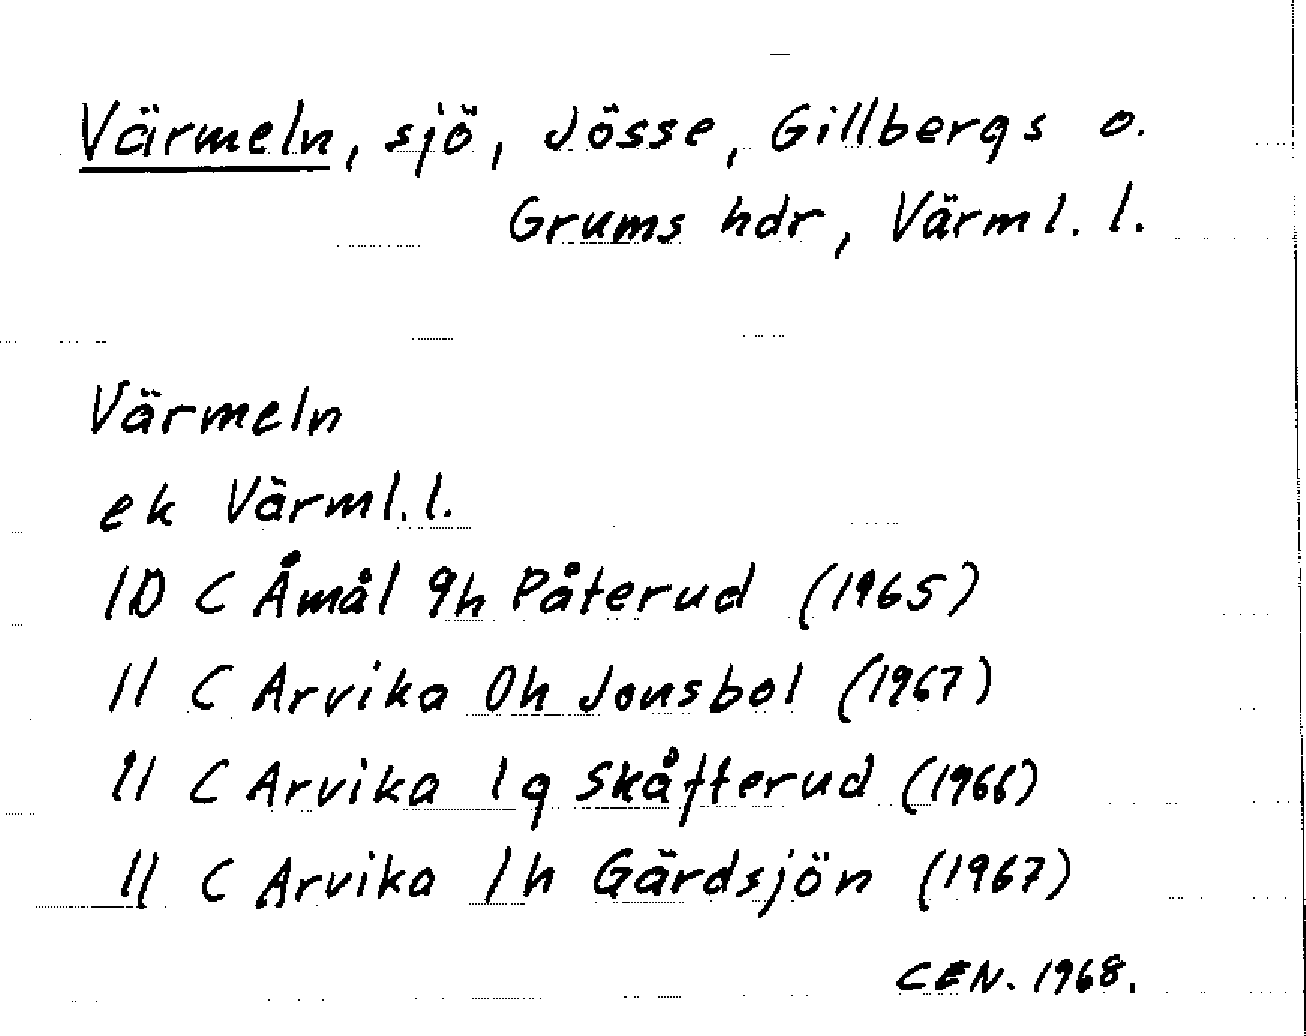 Värmeln, sjö, Jösse, Gillbergs o.
Grums hdr, Värml. l.
Värmeln
ek Värml. l.
10 C Åmål 9h Påterud (1965)
11 C Arvika 0h Jonsbol (1967)
11 C Arvika 1g Skåfterud (1966)
11 C Arvika 1h Gärdsjön (1967)
CEN. 1968.